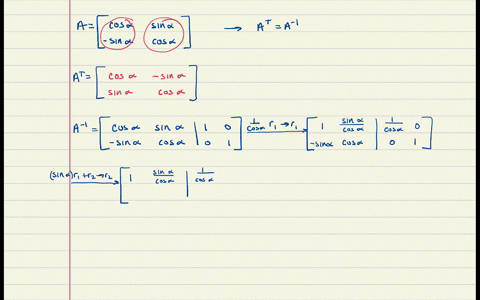 A = [cos α  sin α; -sin α  cos α] → Aᵀ = A⁻¹
Aᵀ = [cos α  -sin α; sin α  cos α]
A⁻¹ = [cos α  sin α | 1  0; -sin α  cos α | 0  1] 1/cos α r₁ → r₁ [1  sin α/cos α | 1/cos α  0; -sin α  cos α | 0  1]
(sin α)r₁ + r₂ → r₂ [1  sin α/cos α | 1/cos α